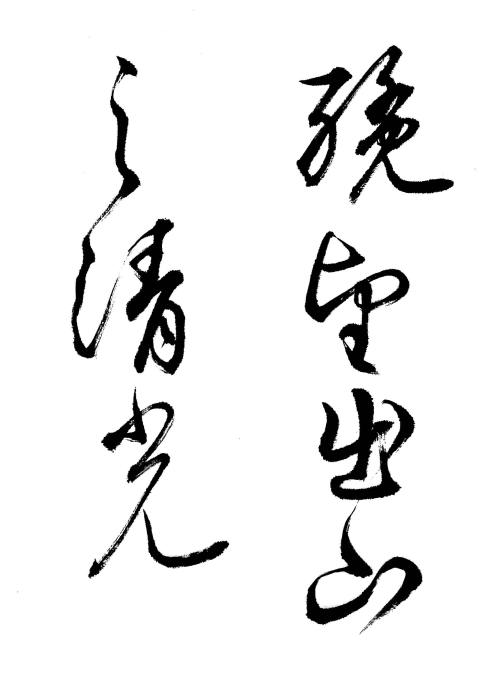 望出山
之清光